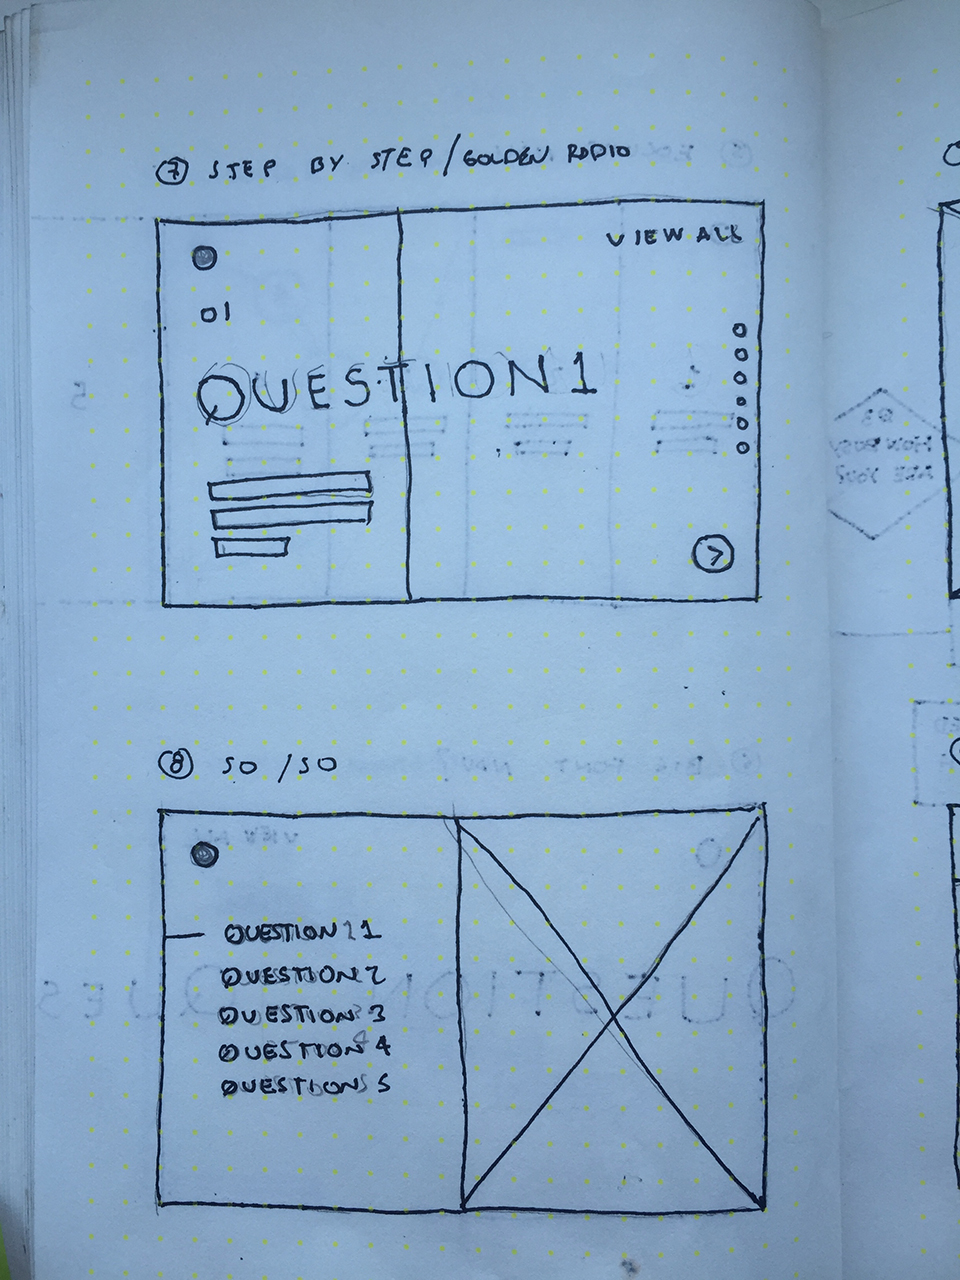 7 STEP BY STEP/GOLDEN RADIO
VIEW ALL
01
QUESTION 1
>
8 SO/SO
QUESTION 1
QUESTION 2
QUESTION 3
QUESTION 4
QUESTION 5